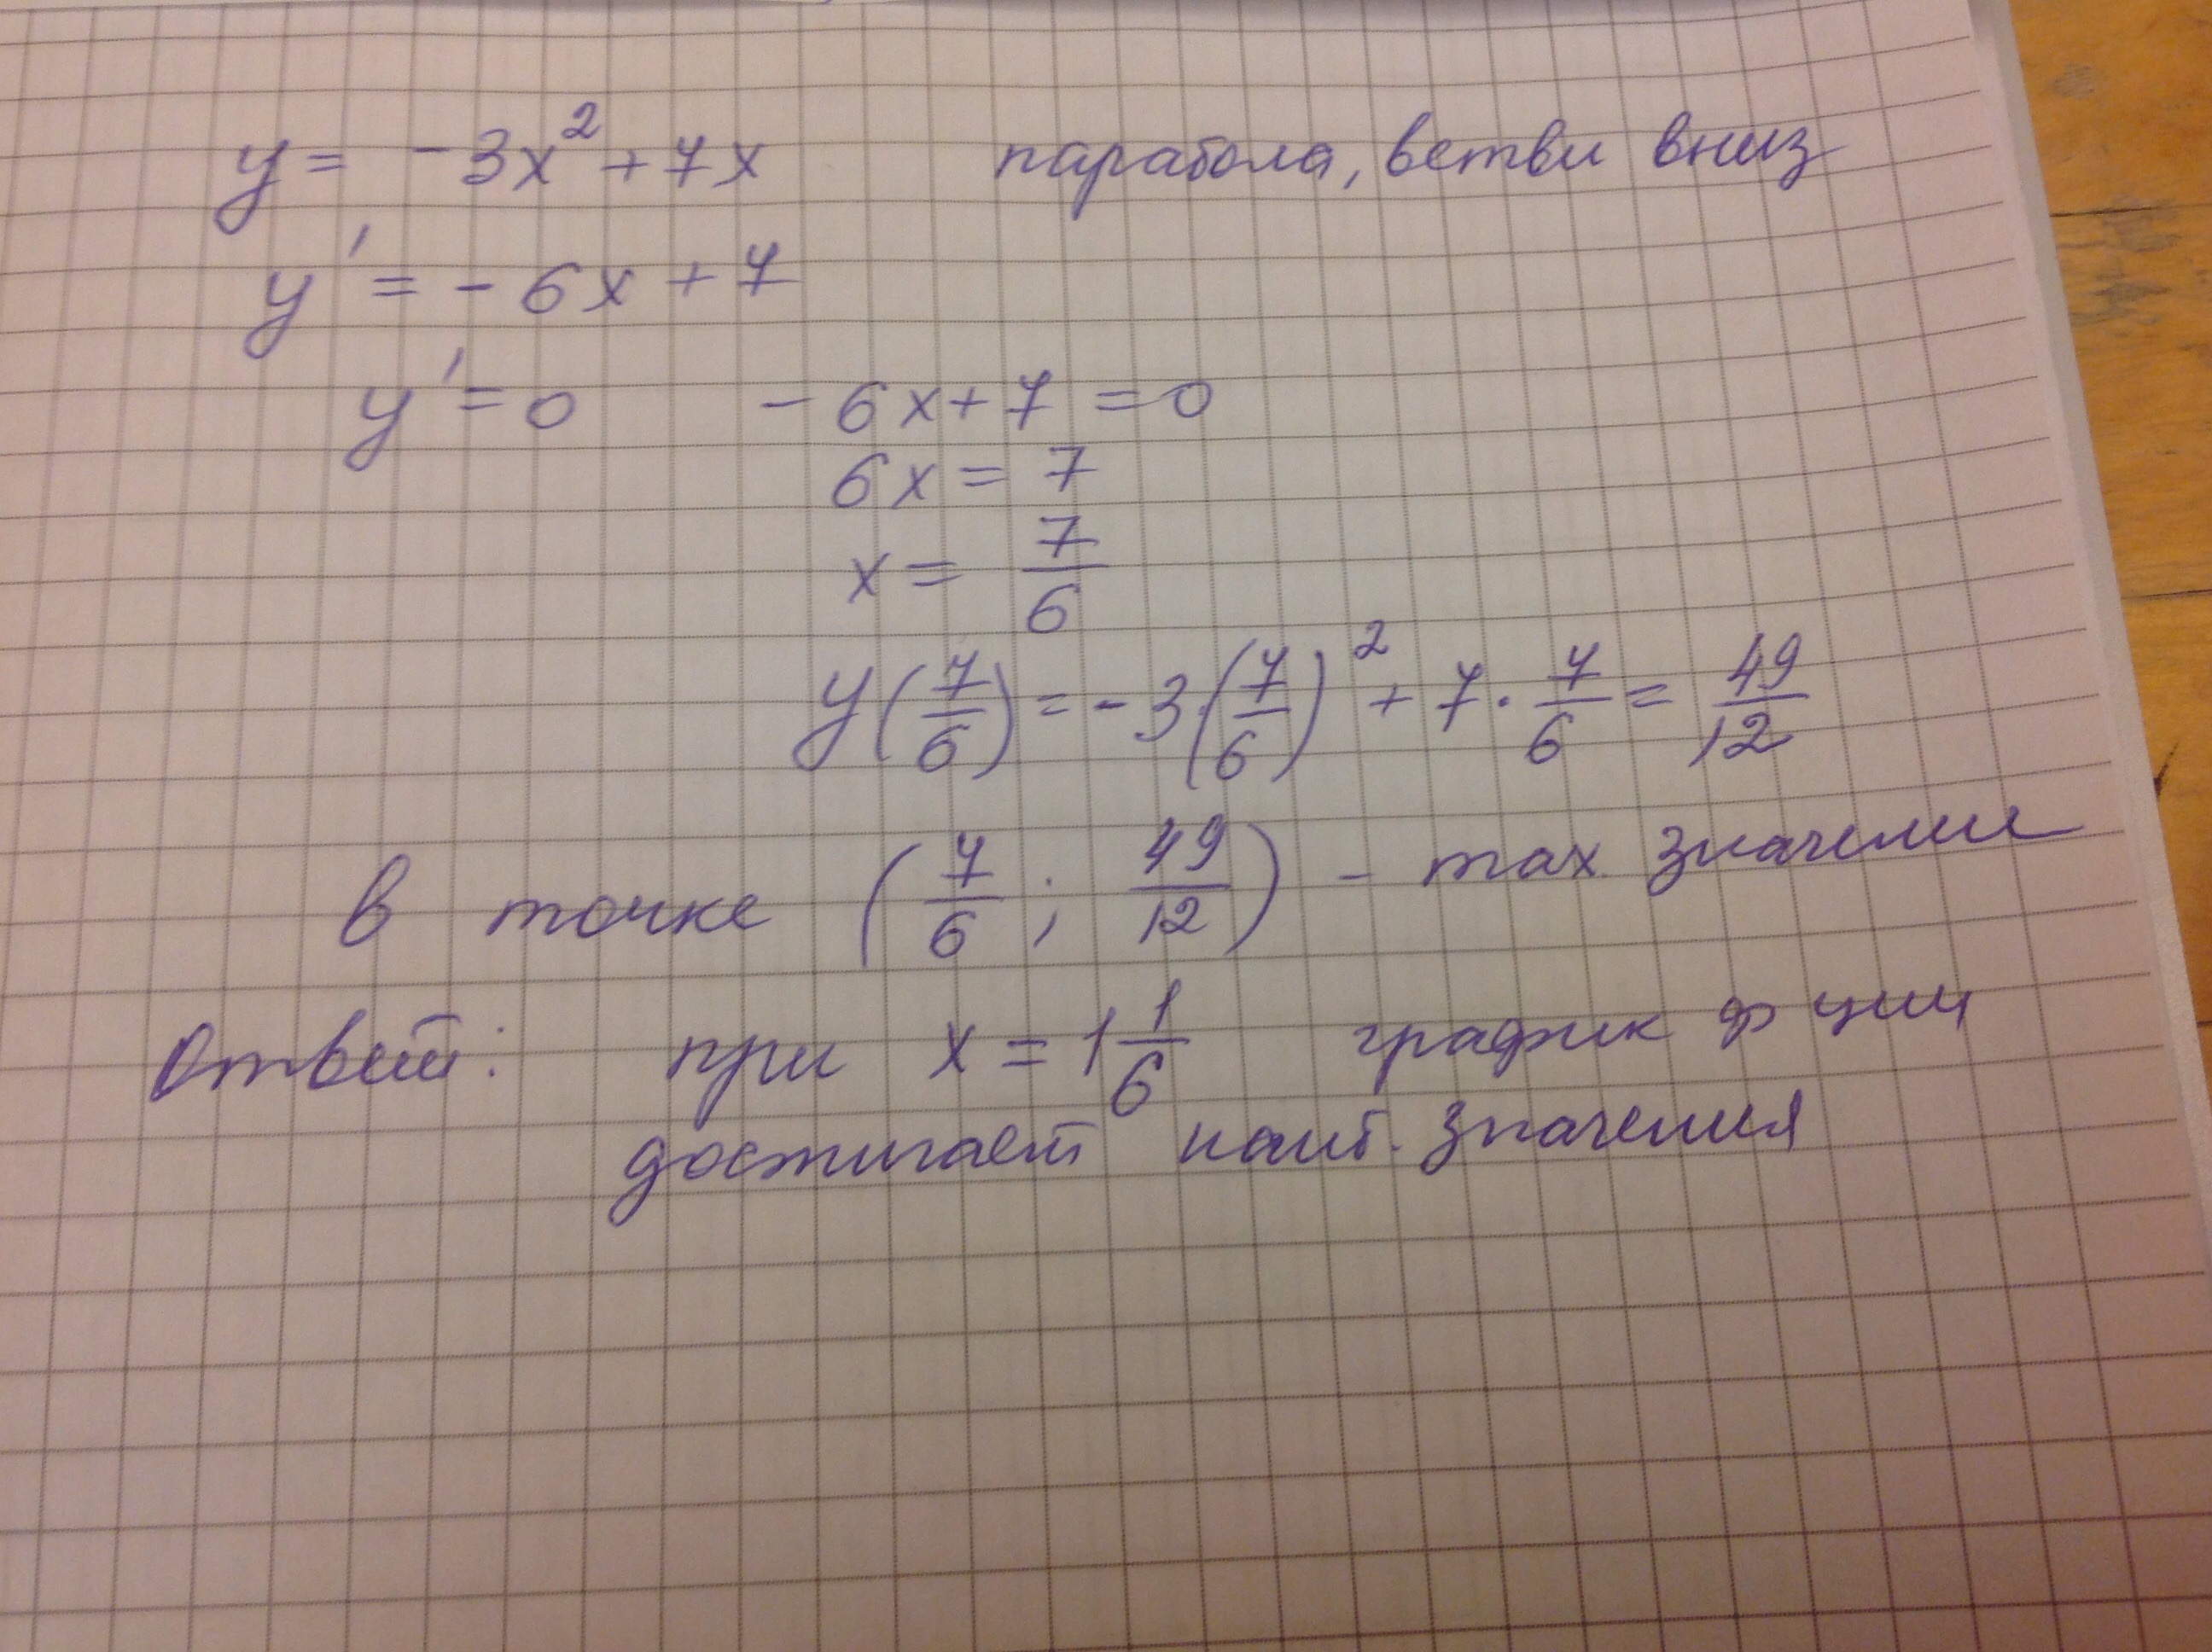 y = -3x² + 7x парабола, ветви вниз
y' = -6x + 7
y' = 0 -6x + 7 = 0
6x = 7
x = 7/6
y(7/6) = -3·(7/6)² + 7 · 7/6 = 49/12
в точке (7/6 ; 49/12) - max значение
Ответ: при x = 1 1/6 график ф ции
достигает наиб. значения